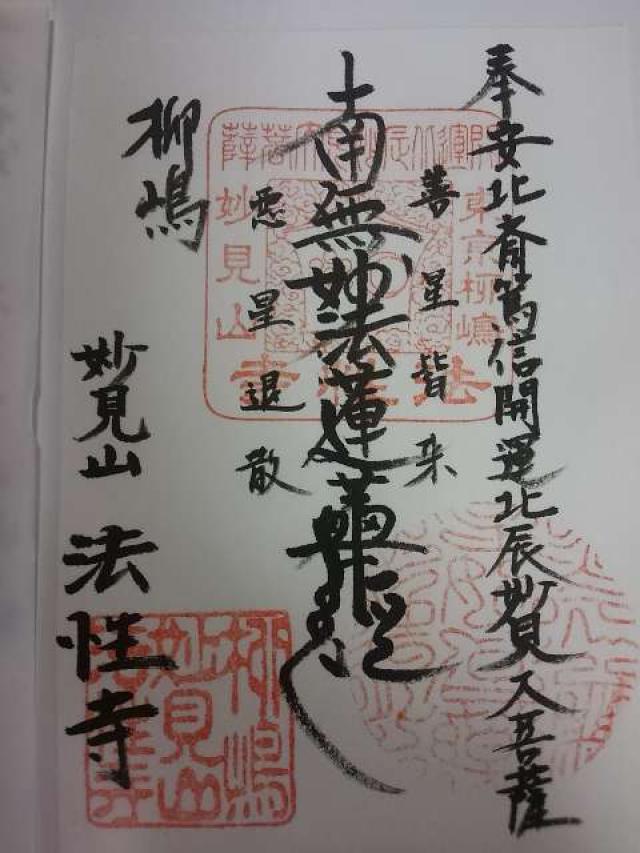 奉安北斎篤信開運北辰妙見大菩薩
善星皆来
南無妙法蓮華経
悪星退散
柳嶋
妙見山
法性寺
東京柳嶋
妙見山
法性寺
柳嶋
妙見山
法性寺